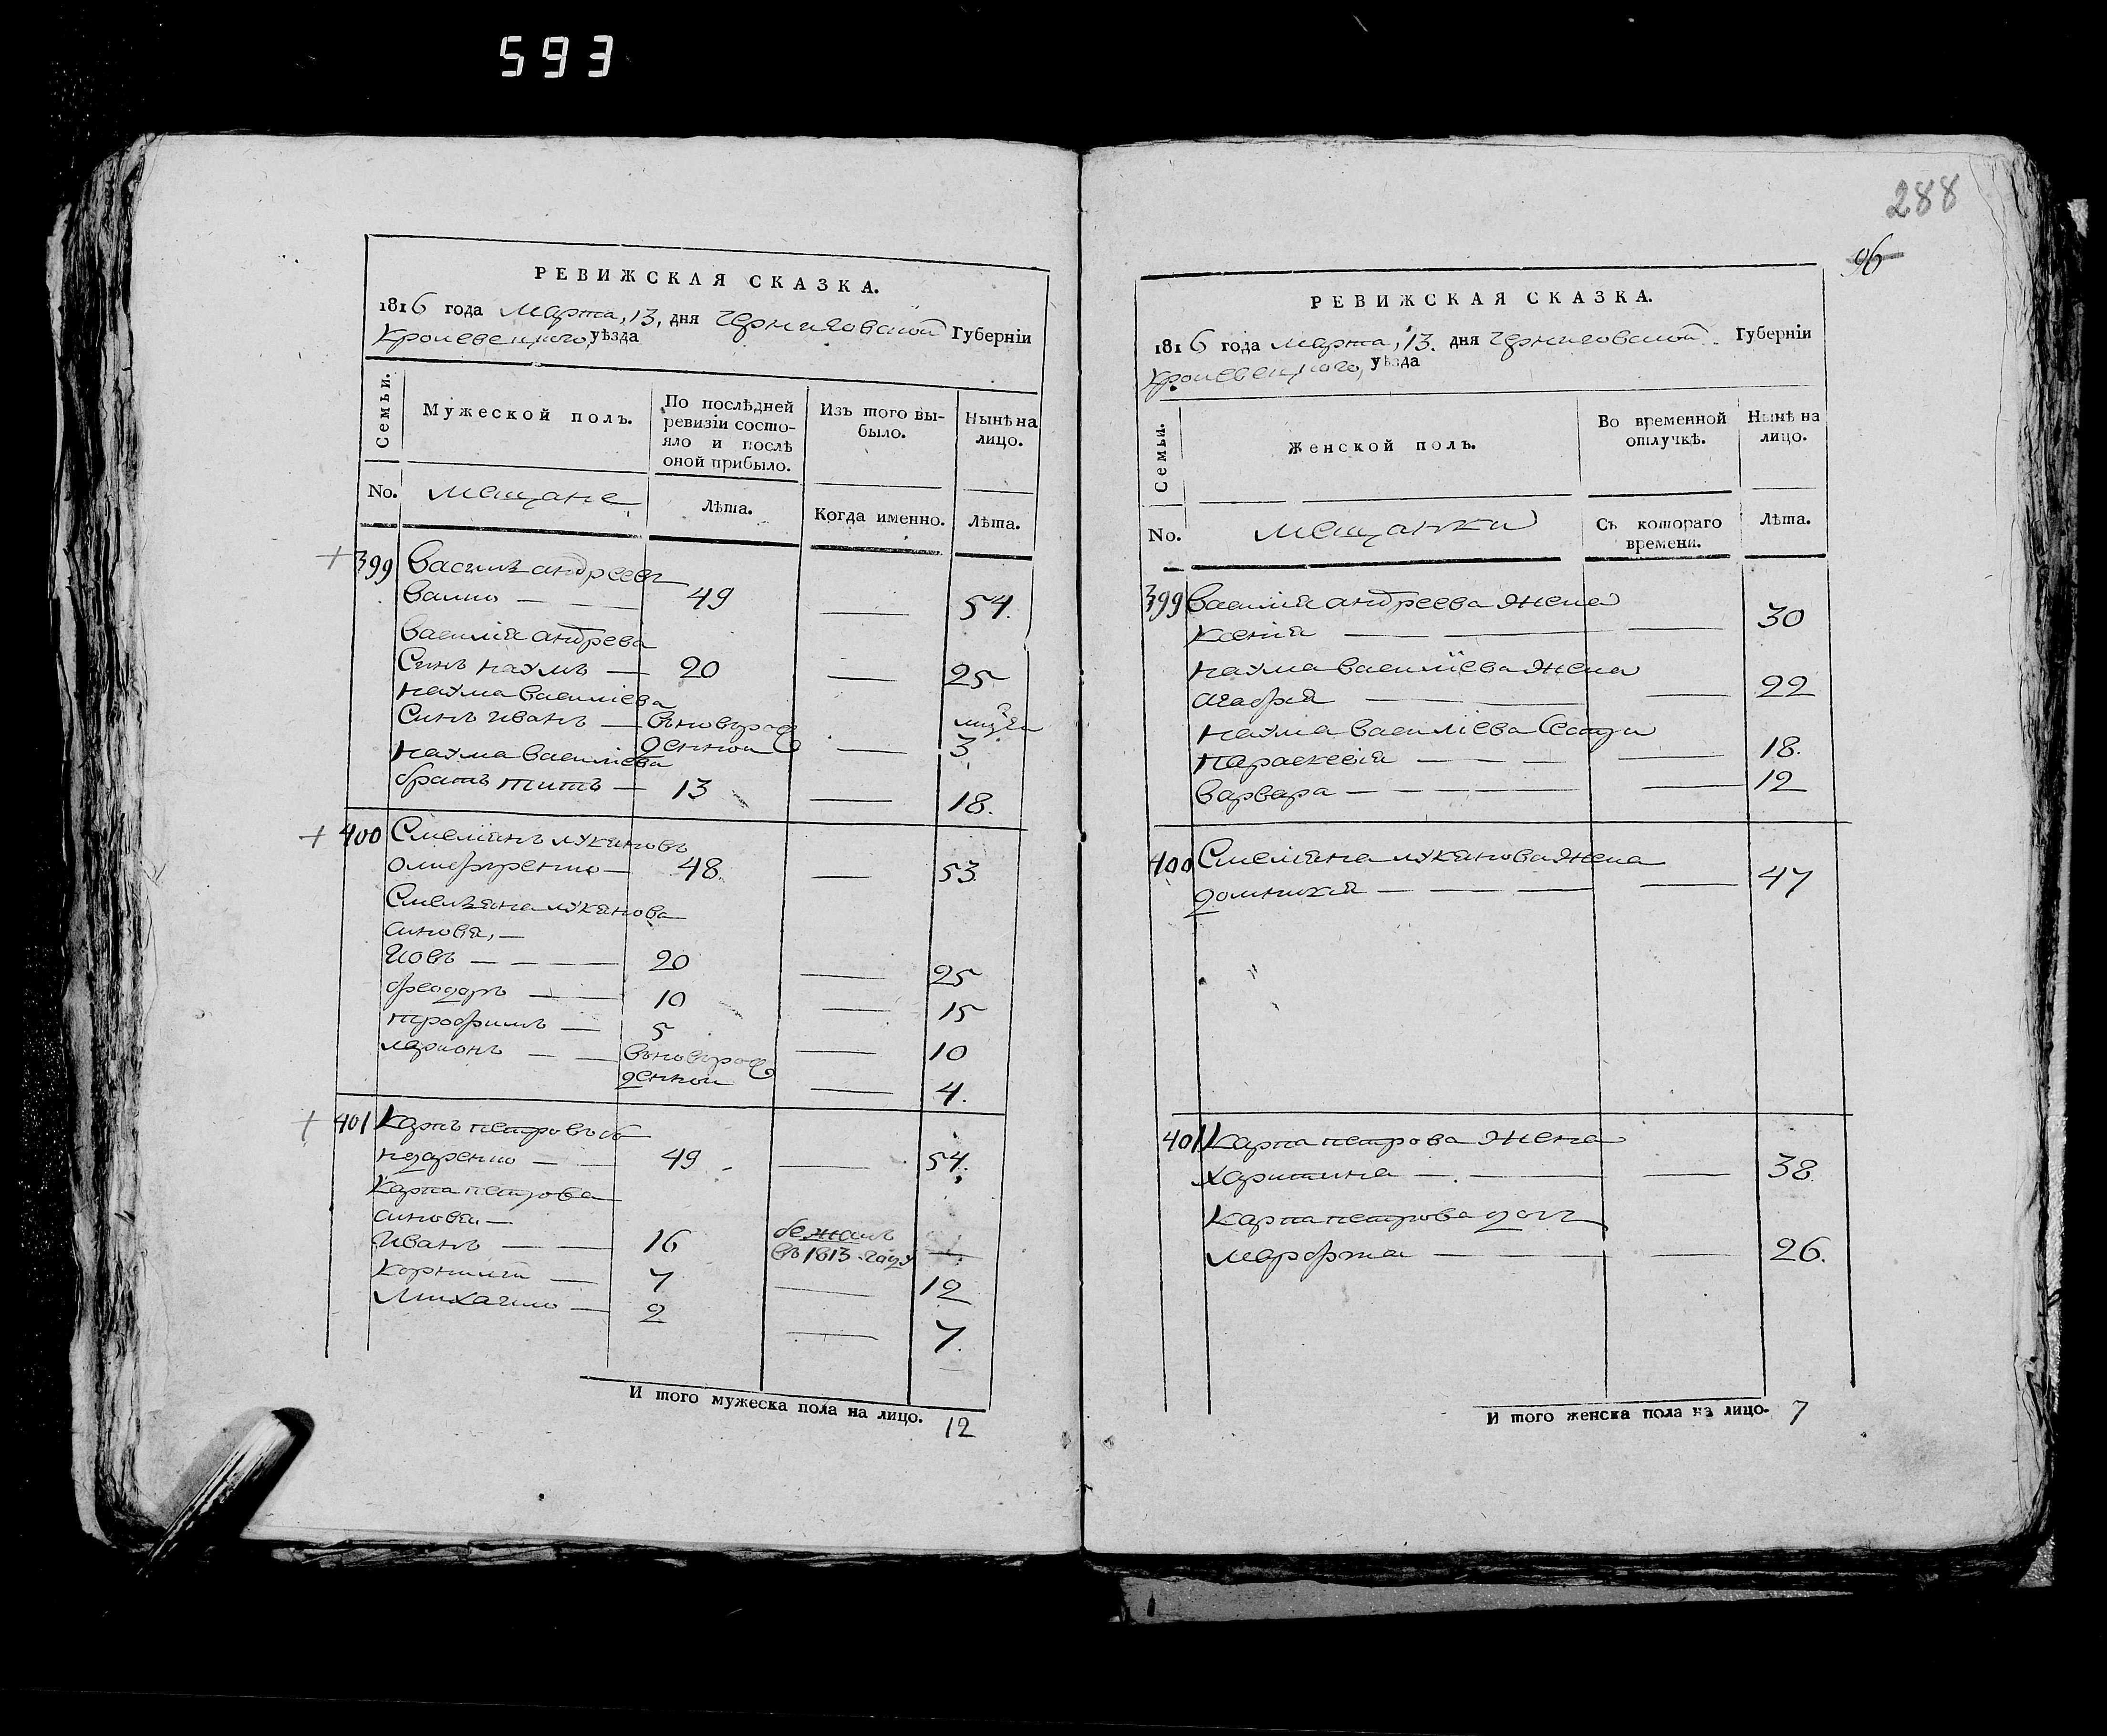 593
РЕВИЖСКАЯ СКАЗКА.
1816 года марта, 13, дня Черниговской Губерніи
Кролевецкого, уѣзда
Семьи.
Мужеской полъ.
По послѣдней ревизіи состо-
яло и послѣ
оной прибыло.
Изъ того вы-
было.
Нынѣ на
лицо.
No.
мещане
Лѣта.
Когда именно.
Лѣта.
399 Василь андреевъ
49 — 54.
василія андреева
Синъ наумъ — 20 — 25
наума василіева
Синъ иванъ — вновь рож
денной — 3
наума василіева
братъ титъ — 13 — 18.
400 Смеліянъ лукяновъ
48. — 53.
Смеляна лукянова
синовя, —
Иовъ — — — 20 — 25
феодоръ — — 10 — 15
трофимъ — 5 — 10
ларионъ — — вновь рож
денной — 4.
401 Карпъ петровъ
назаренко — — 49 — 54.
Карпа петрова
синовя —
Иванъ — — 16 бежалъ
въ 1813 году —
корнилій — 7 — 12
Михайло — 2 — 7.
И того мужеска пола на лицо. 12
288
96
РЕВИЖСКАЯ СКАЗКА.
1816 года марта, 13. дня Черниговской Губерніи
Кролевецкого, уѣзда
Семьи.
Женской полъ.
Во временной
отлучкѣ.
Нынѣ на
лицо.
No.
мещанки
Съ котораго
времени.
Лѣта.
399 Василія андреева жена
ксенія — — — 30
наума василіева жена
агафія — — — 22
наума василіева Сестри
параскевія — — — — 18.
варвара — — — — 12
400 Смеліяна лукянова жена
домникія — — — — 47
401 Карпа петрова жена
харитина — — — 38.
Карпа петрова дочь
марфа — — — 26.
И того женска пола на лицо. 7